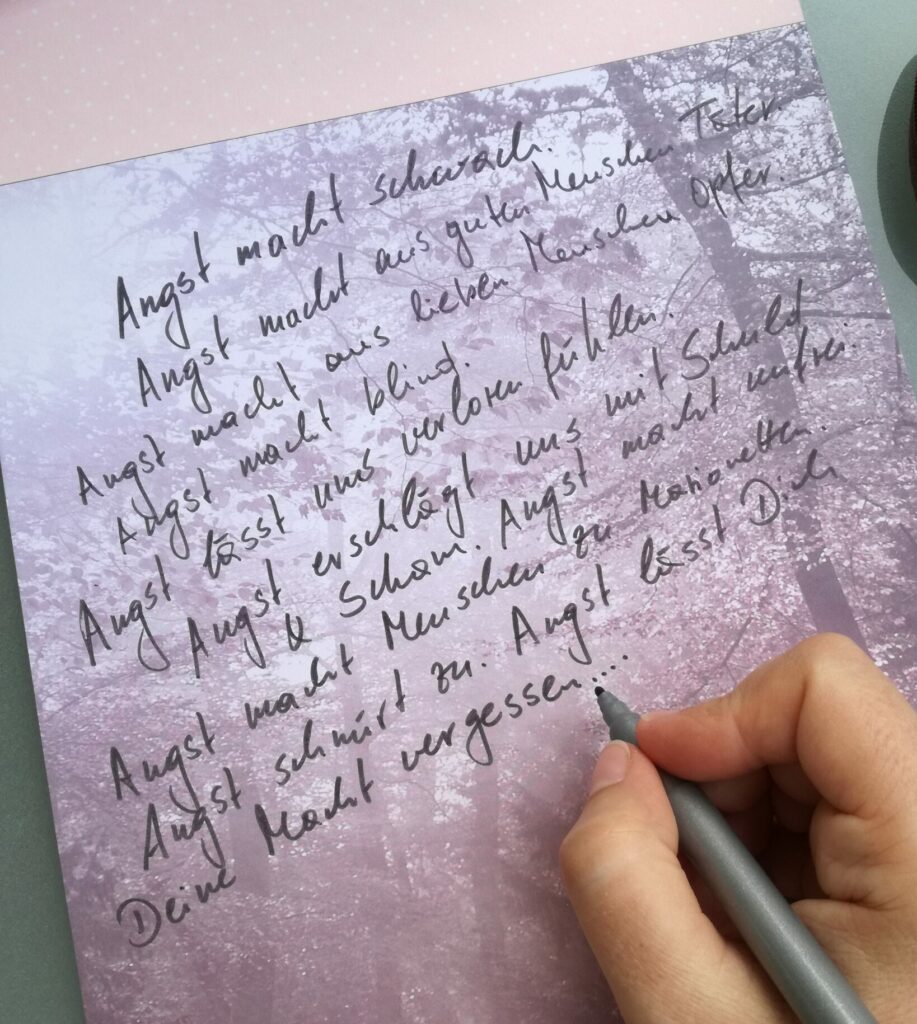 Angst macht schwach.
Angst macht aus guten Menschen Täter.
Angst macht aus lieben Menschen Opfer.
Angst macht blind.
Angst lässt uns verloren fühlen.
Angst erschlägt uns mit Schuld
& Scham. Angst macht unfrei.
Angst macht Menschen zu Marionetten.
Angst schnürt zu. Angst lässt Dich
Deine Macht vergessen...